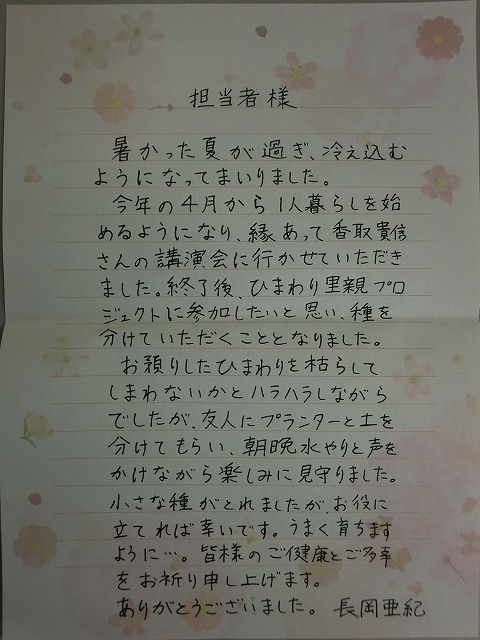 担当者様
暑かった夏が過ぎ、冷え込む
ようになってまいりました。
今年の4月から1人暮らしを始
めるようになり、縁あって香取貴信
さんの講演会に行かせていただき
ました。終了後、ひまわり里親プロ
ジェクトに参加したいと思い、種を
分けていただくこととなりました。
お預りしたひまわりを枯らして
しまわないかとハラハラしながら
でしたが、友人にプランターと土を
分けてもらい、朝晩水やりと声を
かけながら楽しみに見守りました。
小さな種がとれましたが、お役に
立てれば幸いです。うまく育ちます
ように…。皆様のご健康とご多幸
をお祈り申し上げます。
ありがとうございました。 長岡亜紀